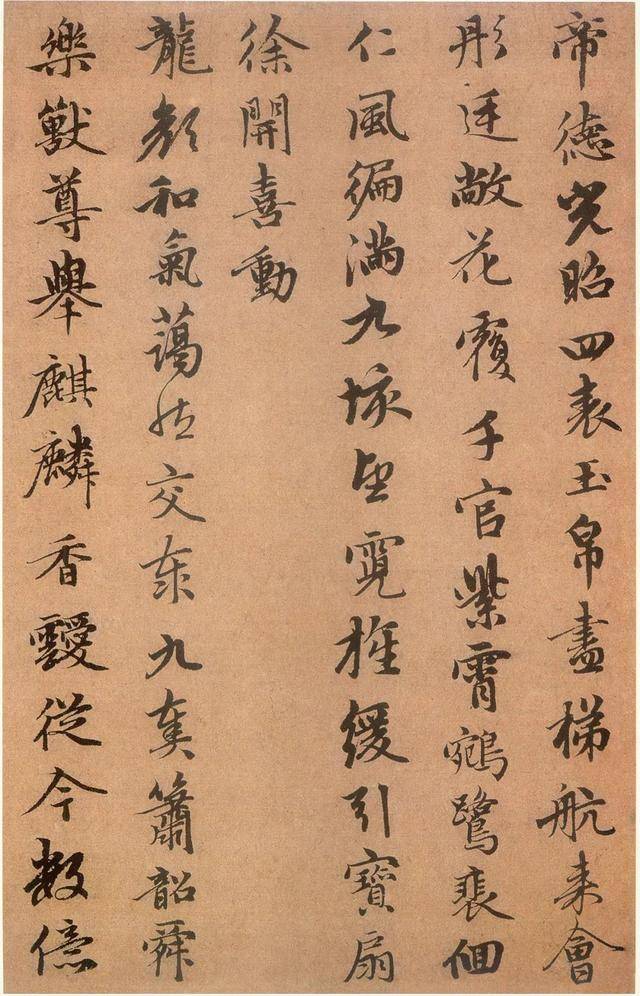 帝德光昭四表玉帛盡梯航来會
彤廷敞花覆千官紫霄鵷鷺裴佪
仁風徧滿九垓望霓旌緩引寶扇
徐開喜動
龍顔和氣藹然交泰九奏簫韶舜
樂獸尊舉麒麟香靉從今數億